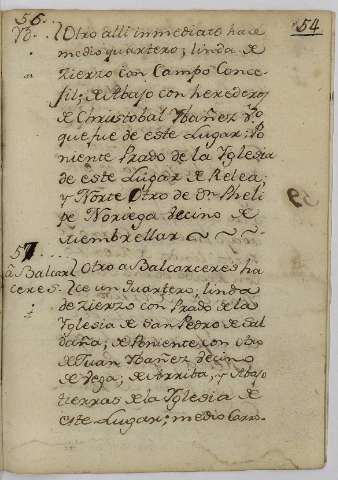 54
56.
Yd. Otro alli inmediato hace
medio quartero; linda de
zierzo con Campo Conce-
jil; de Abajo con herederos
de Christobal Ibañez Vo
que fue de este Lugar: Po
niente Prado de la Yglesia
de este Lugar de Relea;
y Norte Otro de Dn Pheli
pe Noriega vecino de
Membrellar.
57
â Balcar Otro a Balcarceres ha
ceres. ce un quartero, linda
de zierzo con Prado de la
Yglesia de San Pedro de Sal
daña; de Poniente, con otro
de Juan Ibañez vecino
de Vega; de Arriba, y Abajo
tierras de la Yglesia de
este Lugar; medio Carro.